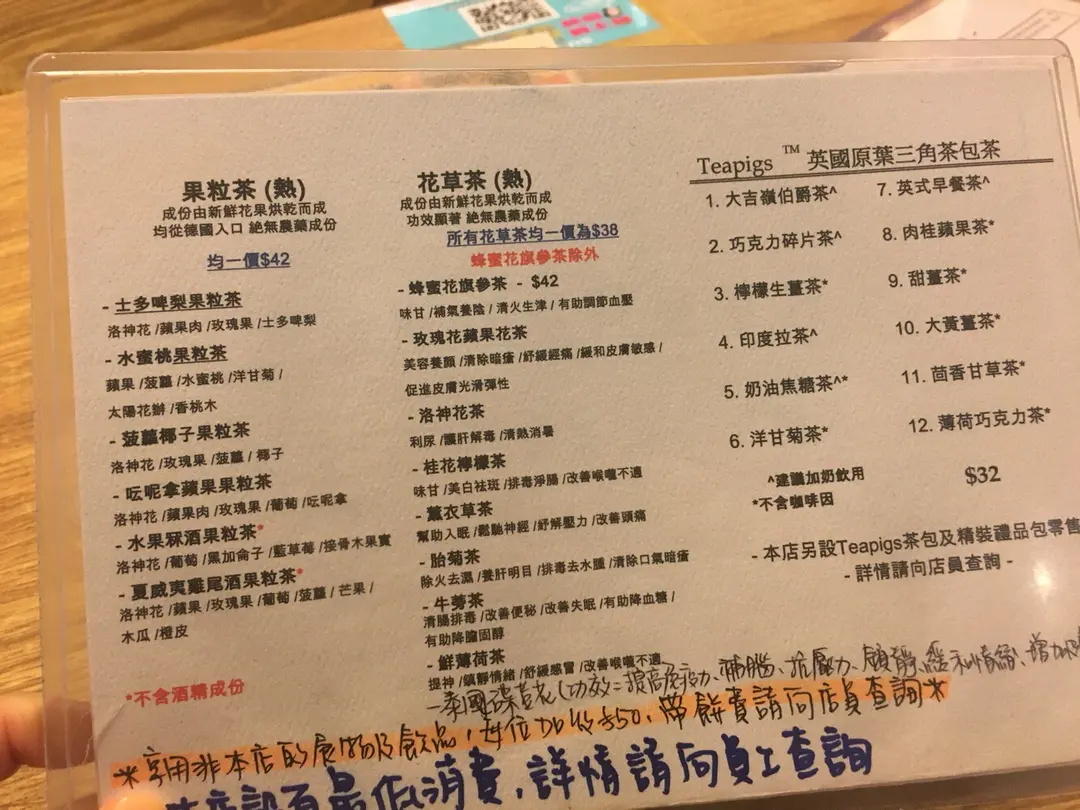 果粒茶 (熱)
成份由新鮮花果烘乾而成
均從德國入口 絕無農藥成份
均一價$42
- 士多啤梨果粒茶
洛神花 /蘋果肉 /玫瑰果 /士多啤梨
- 水蜜桃果粒茶
蘋果 /菠蘿 /水蜜桃 /洋甘菊 /
太陽花辦 /香桃木
- 菠蘿椰子果粒茶
洛神花 /玫瑰果 /菠蘿 / 椰子
- 呍呢拿蘋果果粒茶
洛神花 /蘋果肉 /玫瑰果 /葡萄 /呍呢拿
- 水果冧酒果粒茶*
洛神花 /葡萄 /黑加侖子 /藍草莓 /接骨木果實
- 夏威夷雞尾酒果粒茶*
洛神花 /蘋果 /玫瑰果 /葡萄 /菠蘿 / 芒果 /
木瓜 /橙皮
*不含酒精成份
花草茶 (熱)
成份由新鮮花果烘乾而成
功效顯著 絕無農藥成份
所有花草茶均一價為$38
蜂蜜花旗參茶除外
- 蜂蜜花旗參茶 - $42
味甘 /補氣養陰 / 清火生津 / 有助調節血壓
- 玫瑰花蘋果花茶
美容養顏 /清除暗瘡 /紓緩經痛 /緩和皮膚敏感 /
促進皮膚光滑彈性
- 洛神花茶
利尿 /護肝解毒 /清熱消暑
- 桂花檸檬茶
味甘 /美白袪斑 /排毒淨腸 /改善喉嚨不適
- 薰衣草茶
幫助入眠 /鬆馳神經 /紓解壓力 /改善頭痛
- 胎菊茶
除火去濕 /養肝明目 /排毒去水腫 /清除口氣暗瘡
- 牛蒡茶
清腸排毒 /改善便秘 /改善失眠 /有助降血糖 /
有助降膽固醇
- 鮮薄荷茶
提神 /鎮靜情緒 /舒緩感冒 /改善喉嚨不適
Teapigs ™ 英國原葉三角茶包茶
1. 大吉嶺伯爵茶^
2. 巧克力碎片茶^
3. 檸檬生薑茶*
4. 印度拉茶^
5. 奶油焦糖茶^*
6. 洋甘菊茶*
7. 英式早餐茶^
8. 肉桂蘋果茶*
9. 甜薑茶*
10. 大黃薑茶*
11. 茴香甘草茶*
12. 薄荷巧克力茶*
^建議加奶飲用
*不含咖啡因
$32
- 本店另設Teapigs茶包及精裝禮品包零售
- 詳情請向店員查詢 -
-泰國碟豆花(功效=提高免疫力、補腦、抗壓力、鎮靜、
*享用非本店的食物及飲品,每位加收$50,帶餅費請向店員查詢*
本店設有最低消費,詳情請向員工查詢